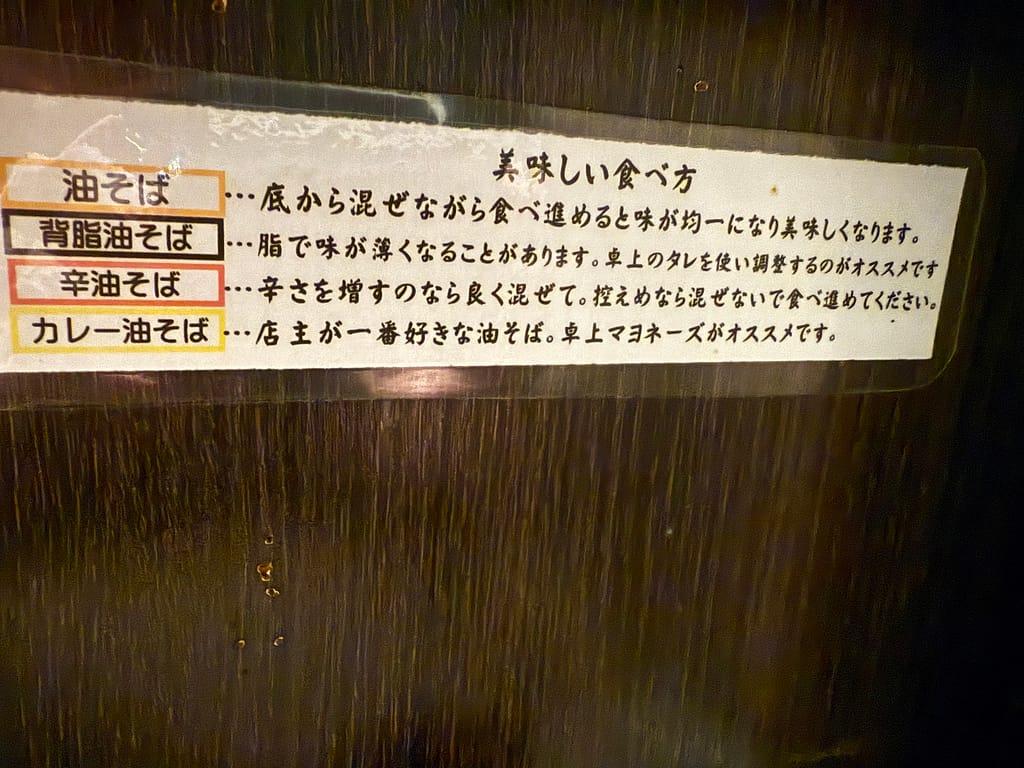 美味しい食べ方
油そば…底から混ぜながら食べ進めると味が均一になり美味しくなります。
背脂油そば…脂で味が薄くなることがあります。卓上のタレを使い調整するのがオススメです
辛油そば…辛さを増すのなら良く混ぜて。控えめなら混ぜないで食べ進めてください。
カレー油そば…店主が一番好きな油そば。卓上マヨネーズがオススメです。